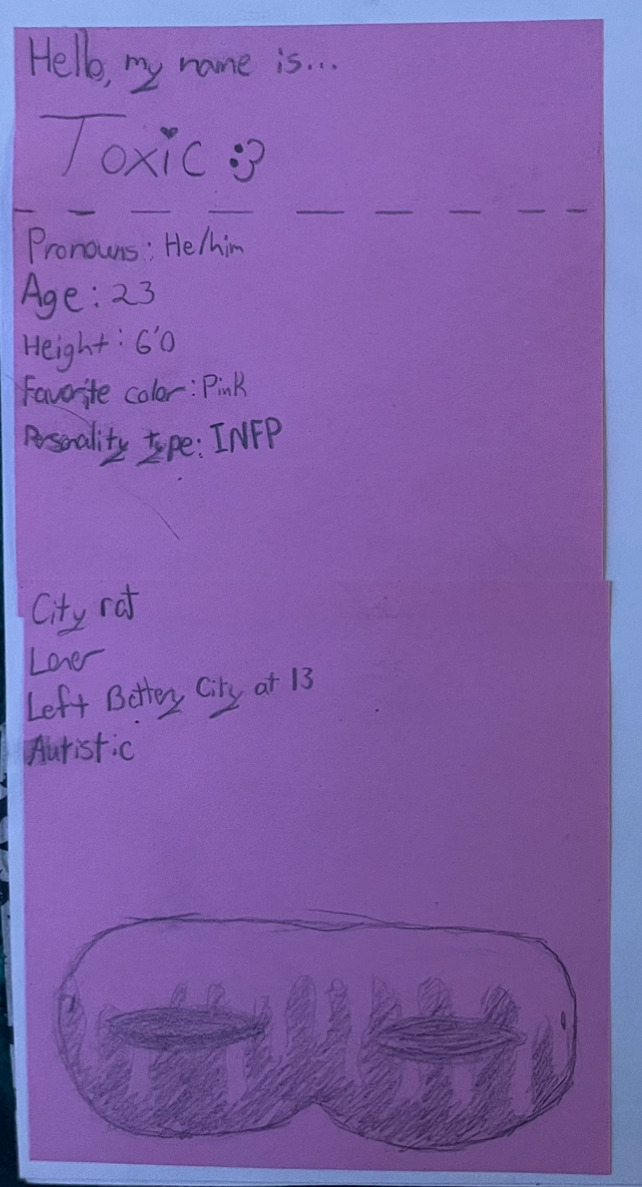 Hello, my name is...
Toxic :3
Pronouns: He/him
Age: 23
Height: 6'0
Favorite color: Pink
Personality type: INFP
City rat
Loner
Left Battery City at 13
Autistic